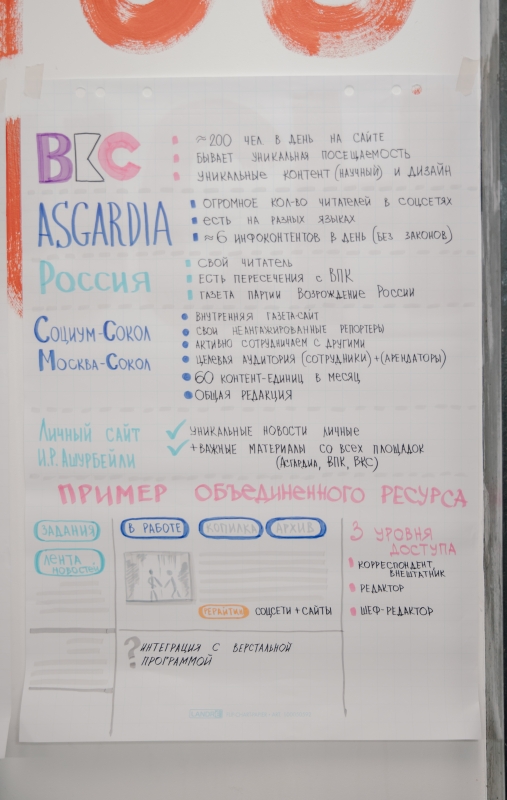 ВКС
≈ 200 ЧЕЛ В ДЕНЬ НА САЙТЕ
БЫВАЕТ УНИКАЛЬНАЯ ПОСЕЩАЕМОСТЬ
УНИКАЛЬНЫЕ КОНТЕНТ (НАУЧНЫЙ) И ДИЗАЙН
ASGARDIA
ОГРОМНОЕ КОЛ-ВО ЧИТАТЕЛЕЙ В СОЦСЕТЯХ
ЕСТЬ НА РАЗНЫХ ЯЗЫКАХ
≈ 6 ИНФОКОНТЕНТОВ В ДЕНЬ (БЕЗ ЗАКОНОВ)
РОССИЯ
СВОЙ ЧИТАТЕЛЬ
ЕСТЬ ПЕРЕСЕЧЕНИЯ С ВПК
ГАЗЕТА ПАРТИИ ВОЗРОЖДЕНИЕ РОССИИ
СОЦИУМ-СОКОЛ
МОСКВА-СОКОЛ
ВНУТРЕННЯЯ ГАЗЕТА-САЙТ
СВОИ НЕАНГАЖИРОВАННЫЕ РЕПОРТЕРЫ
АКТИВНО СОТРУДНИЧАЕМ С ДРУГИМИ
ЦЕЛЕВАЯ АУДИТОРИЯ (СОТРУДНИКИ)+(АРЕНДАТОРЫ)
60 КОНТЕНТ-ЕДИНИЦ В МЕСЯЦ
ОБЩАЯ РЕДАКЦИЯ
ЛИЧНЫЙ САЙТ
И.Р. АШУРБЕЙЛИ
УНИКАЛЬНЫЕ НОВОСТИ ЛИЧНЫЕ
+ ВАЖНЫЕ МАТЕРИАЛЫ СО ВСЕХ ПЛОЩАДОК
(АСГАРДИА, ВПК, ВКС)
ПРИМЕР ОБЪЕДИНЕННОГО РЕСУРСА
ЗАДАНИЯ
ЛЕНТА
НОВОСТЕЙ
В РАБОТЕ
КОПИЛКА
АРХИВ
РЕРАЙТИНГ
СОЦСЕТИ + САЙТЫ
3 УРОВНЯ
ДОСТУПА
КОРРЕСПОНДЕНТ,
ВНЕШТАТНИК
РЕДАКТОР
ШЕФ-РЕДАКТОР
? ИНТЕГРАЦИЯ С ВЕРСТАЛЬНОЙ
ПРОГРАММОЙ